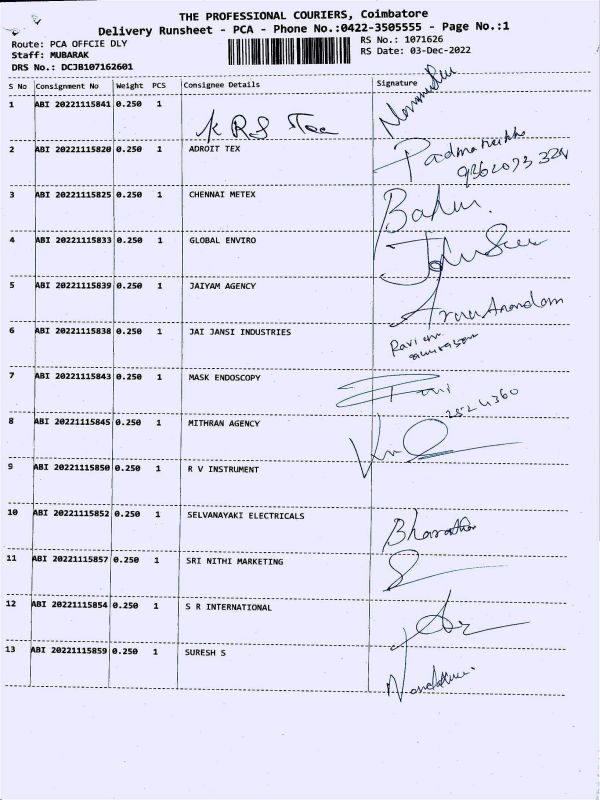 THE PROFESSIONAL COURIERS, Coimbatore
Delivery Runsheet - PCA - Phone No.:0422-3505555 - Page No.:1
Route: PCA OFFCIE DLY
RS No.: 1071626
Staff: MUBARAK
RS Date: 03-Dec-2022
DRS No.: DCJB107162601
S No Consignment No Weight PCS Consignee Details Signature
1 ABI 20221115841 0.250 1 K R S Tec
2 ABI 20221115820 0.250 1 ADROIT TEX
3 ABI 20221115825 0.250 1 CHENNAI METEX
4 ABI 20221115833 0.250 1 GLOBAL ENVIRO
5 ABI 20221115839 0.250 1 JAIYAM AGENCY
6 ABI 20221115838 0.250 1 JAI JANSI INDUSTRIES
7 ABI 20221115843 0.250 1 MASK ENDOSCOPY
8 ABI 20221115845 0.250 1 MITHRAN AGENCY
9 ABI 20221115850 0.250 1 R V INSTRUMENT
10 ABI 20221115852 0.250 1 SELVANAYAKI ELECTRICALS
11 ABI 20221115857 0.250 1 SRI NITHI MARKETING
12 ABI 20221115854 0.250 1 S R INTERNATIONAL
13 ABI 20221115859 0.250 1 SURESH S